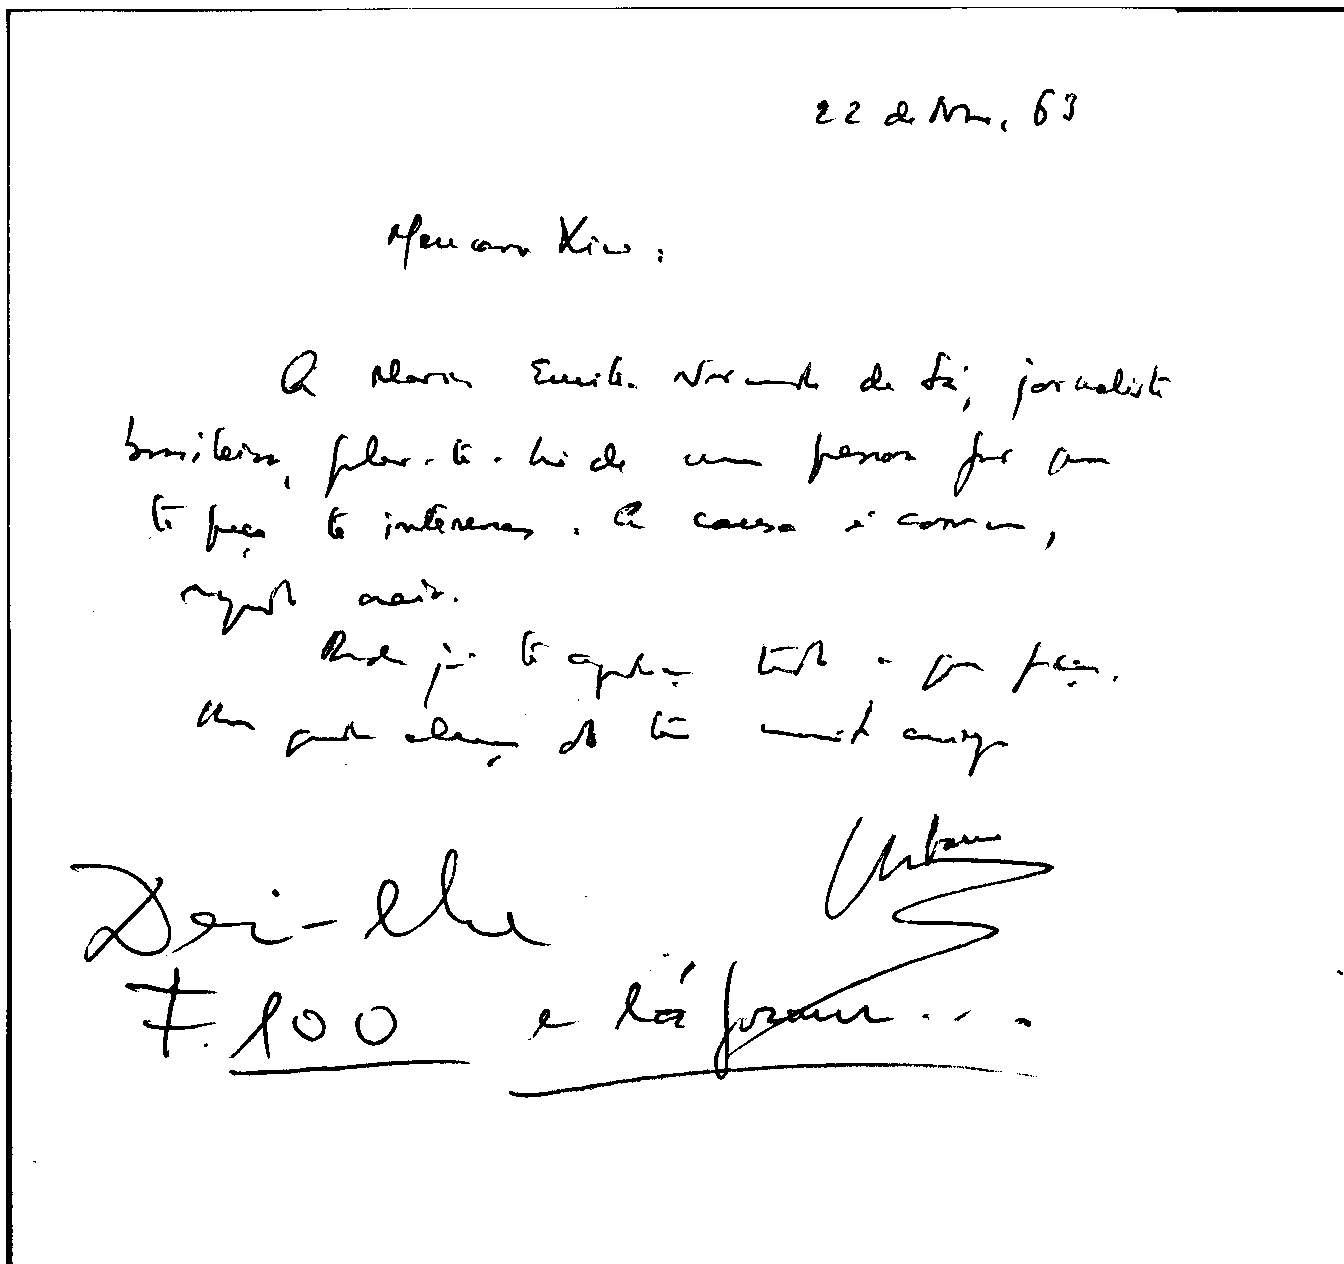 22 de Nov. 63
Meu caro Xico:
A Maria Emilia de Sá, jornalista
brasileira, falar-te-há de uma pessoa por quem
te peço te interesses. A causa é comum,
ajuda mais.
Desde já te agradeço tudo o que faças.
Um grande abraço do teu muito amigo
Urbano
Dei-lhe
F. 100 e lá foram...